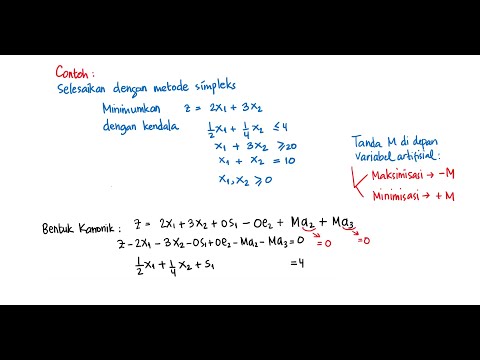 Contoh :
Selesaikan dengan metode simpleks
Minimumkan z = 2x₁ + 3x₂
dengan kendala ½x₁ + ¼x₂ ≤ 4
x₁ + 3x₂ ≥ 20
x₁ + x₂ = 10
x₁, x₂ ≥ 0
Tanda M di depan
variabel artifisial :
Maksimisasi → -M
Minimisasi → +M
Bentuk Kanonik : z = 2x₁ + 3x₂ + 0s₁ - 0e₂ + Ma₂ + Ma₃
z - 2x₁ - 3x₂ - 0s₁ + 0e₂ - Ma₂ - Ma₃ = 0 = 0 = 0
½x₁ + ¼x₂ + s₁ = 4